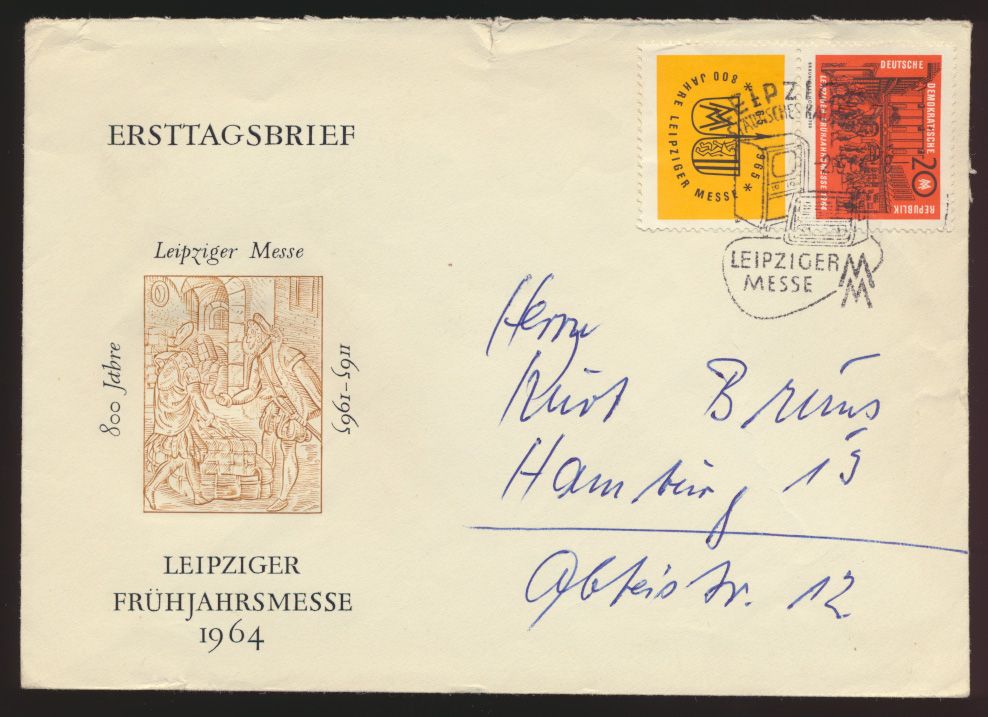 ERSTTAGSBRIEF
Leipziger Messe
800 Jahre
1165–1965
LEIPZIGER
FRÜHJAHRSMESSE
1964
800 JAHRE LEIPZIGER MESSE
DEUTSCHE DEMOKRATISCHE REPUBLIK
20
LEIPZIGER FRÜHJAHRSMESSE 1964
LEIPZIGER
MESSE
Herrn
Kurt Bruns
Hamburg 13
Abteistr. 12